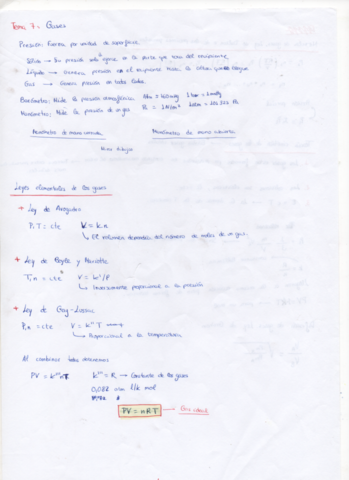 Tema 7: Gases
Presión: Fuerza por unidad de superficie.
Sólido → Su presión solo ejerce en la parte que toca del recipiente.
Líquido → Genera presión en el recipiente hasta la altura que llegue.
Gas → Genera presión en todos lados.
Barómetro: Mide la presión atmosférica. 1 atm = 760 mmHg
Manómetro: Mide la presión de un gas Pa = 1 N/m² 1 atm = 101.325 Pa
Manómetro de rama cerrada Manómetro de rama abierta
Mirar dibujos
Leyes elementales de los gases
→ Ley de Avogadro
P, T = cte V = k·n
↳ El volumen dependerá del número de moles de un gas.
→ Ley de Boyle y Mariotte
T, n = cte V = k'/P
↳ Inversamente proporcional a la presión
→ Ley de Gay-Lussac
P, n = cte V = k'' T
↳ Proporcional a la temperatura
Al combinar todas obtenemos
PV = k''' nT k''' = R → Constante de los gases
0,082 atm l/k mol
PV = nRT → Gas ideal